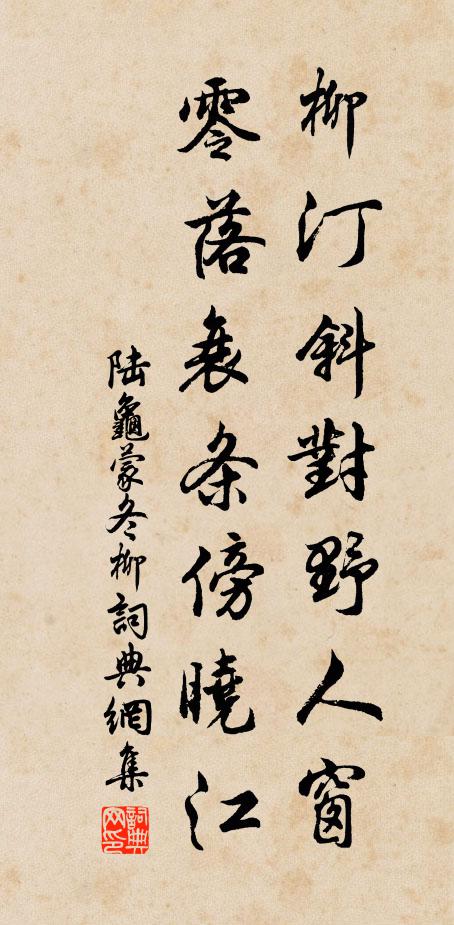 柳汀斜對野人窗
零落衰条傍曉江
陆龜蒙冬柳詞典網集
詞典網印